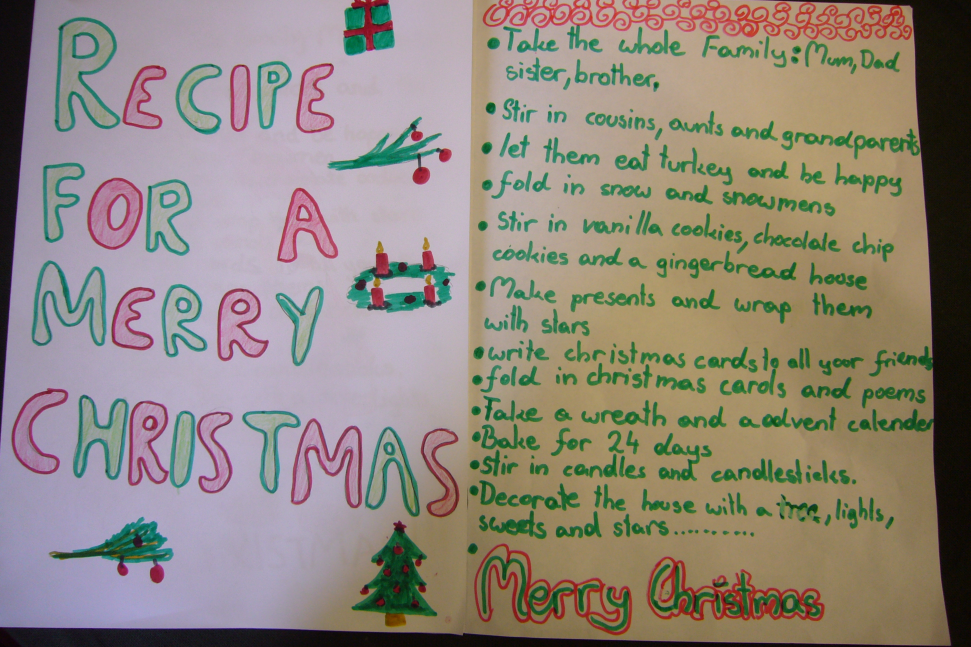 RECIPE
FOR A
MERRY
CHRISTMAS
• Take the whole Family: Mum, Dad
sister, brother,
• Stir in cousins, aunts and grandparents
• let them eat turkey and be happy
• fold in snow and snowmens
• Stir in vanilla cookies, chocolate chip
cookies and a gingerbread house
• Make presents and wrap them
with stars
• write christmas cards to all your friends
• fold in christmas carols and poems
• Take a wreath and a advent calender
• Bake for 24 days
• stir in candles and candlesticks.
• Decorate the house with a tree, lights,
sweets and stars..........
•
Merry Christmas